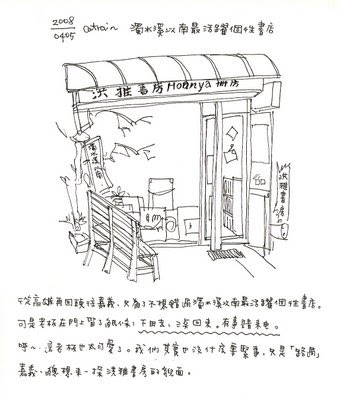 2008
0405 catrain 濁水溪以南最活躍個性書店
洪雅書房 Hounya 冊房
洪雅書房
從高雄再回頭往嘉義、只為了不想錯過濁水溪以南最活躍個性書店。
可是老板在門上留了紙條：下田去，三點回來。有事請來电。
呼～這老板也太可愛了。我們其實也沒什麼要緊事、只是「路過」
嘉義、總想來一探洪雅書房的貌面。